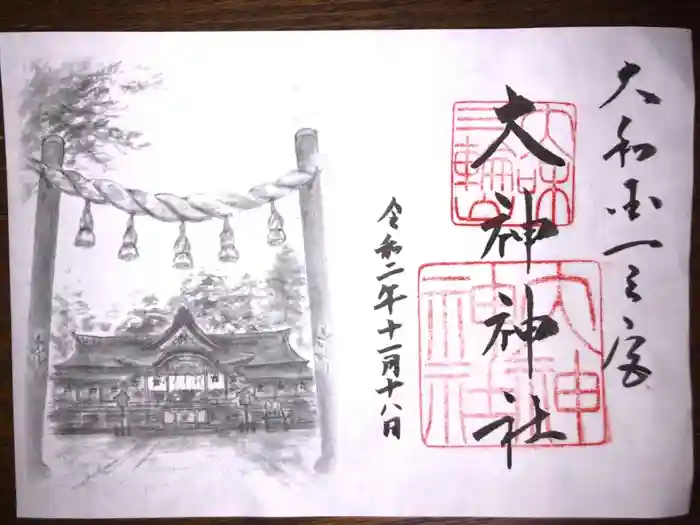 大和国一之宮
大神神社
大神
神社
令和二年十一月十八日